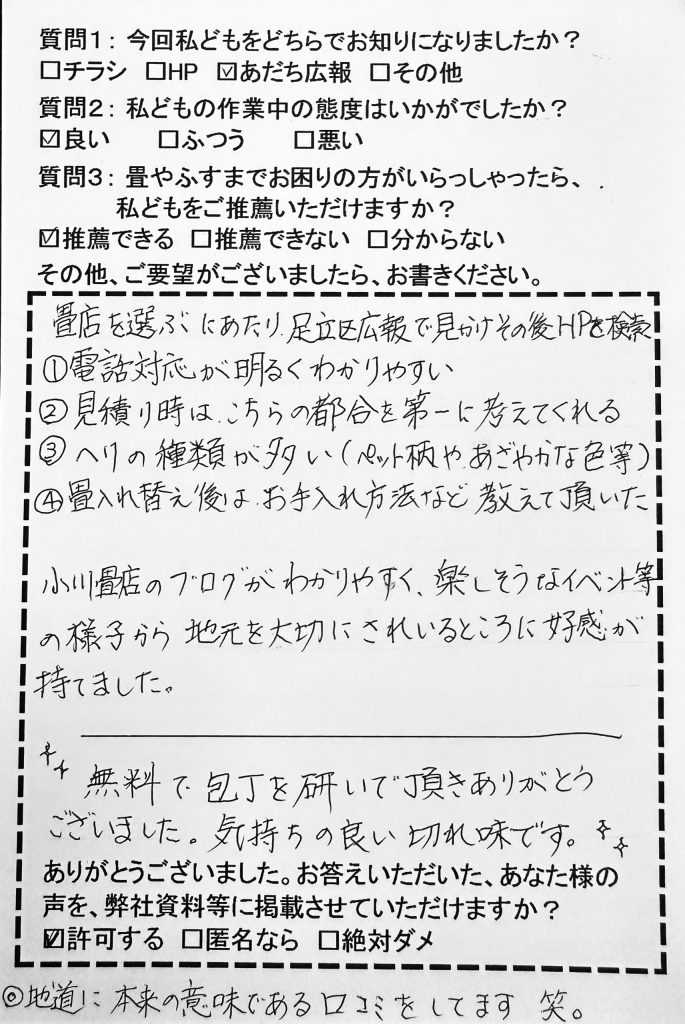 質問1：今回私どもをどちらでお知りになりましたか？
□チラシ □HP ☑あだち広報 □その他
質問2：私どもの作業中の態度はいかがでしたか？
☑良い □ふつう □悪い
質問3：畳やふすまでお困りの方がいらっしゃったら、
私どもをご推薦いただけますか？
☑推薦できる □推薦できない □分からない
その他、ご要望がございましたら、お書きください。
畳店を選ぶにあたり、足立区広報で見かけその後HPを検索
①電話対応が明るくわかりやすい
②見積り時は、こちらの都合を第一に考えてくれる
③ヘリの種類が多い(ペット柄や、あざやかな色等)
④畳入れ替え後は、お手入れ方法など教えて頂いた
小川畳店のブログがわかりやすく、楽しそうなイベント等
の様子から地元を大切にされいるところに好感が
持てました。
無料で包丁を研いで頂きありがとう
ございました。気持ちの良い切れ味です。
ありがとうございました。お答えいただいた、あなた様の
声を、弊社資料等に掲載させていただけますか？
☑許可する □匿名なら □絶対ダメ
◎地道に本来の意味である口コミをしてます 笑。